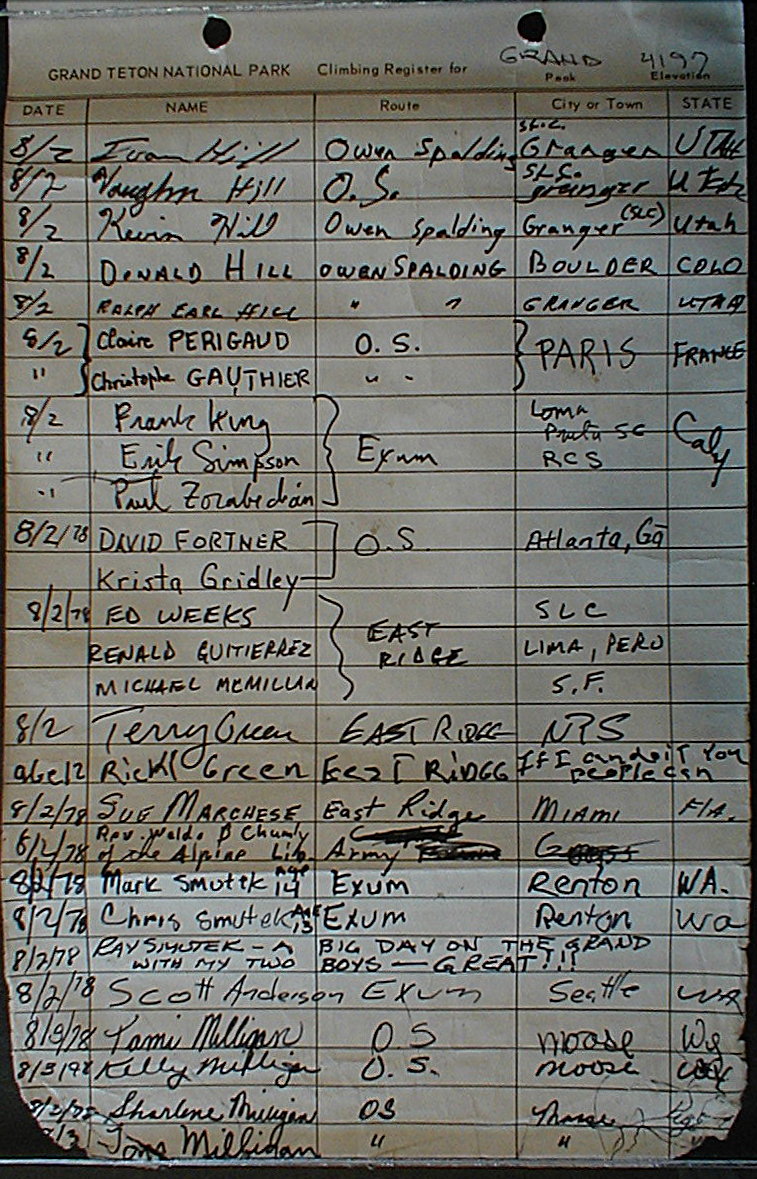 GRAND TETON NATIONAL PARK Climbing Register for GRAND Peak 4197 Elevation
DATE NAME Route City or Town STATE
8/2 Ivan Hill Owen Spalding SLC. Granger UTAH
8/2 Vaughn Hill O.S. SLC. granger Utah
8/2 Kevin Hill Owen Spalding Granger (SLC) Utah
8/2 DONALD HILL OWEN SPALDING BOULDER COLO
8/2 RALPH EARL HILL " " GRANGER UTAH
8/2 Claire PERIGAUD O. S. PARIS FRANCE
" Christophe GAUTHIER " "
8/2 Frank King Loma Prieta SC
" Erik Simpson Exum RCS Caly
" Paul Zorabedian
8/2/78 DAVID FORTNER O.S. Atlanta, Ga
Krista Gridley
8/2/78 ED WEEKS EAST RIDGE SLC
RENALD GUITIERREZ LIMA, PERU
MICHAEL MCMILLIN S.F.
8/2 Terry Green EAST RIDGE NPS
age 12 Rickl Green EEST RiDGG If I can do it You people can
8/2/78 SUE MARCHESE East Ridge MIAMI FlA.
8/2/78 Rev. Waldo B Chumly of the Alpine Lib. Army
8/2/78 Mark Smutek age 14 Exum Renton WA.
8/2/78 Chris Smutek Age 13 Exum Renton Wa
8/2/78 RAY SMUTEK - A BIG DAY ON THE GRAND
WITH MY TWO BOYS — GREAT!!!
8/2/78 Scott Anderson Exum Seattle WA
8/3/78 Tami Milligan O.S moose Wy
8/3/98 Kelly Milligan O. S. moose
Sharlene Milligan OS Moose
Tom Milligan " "